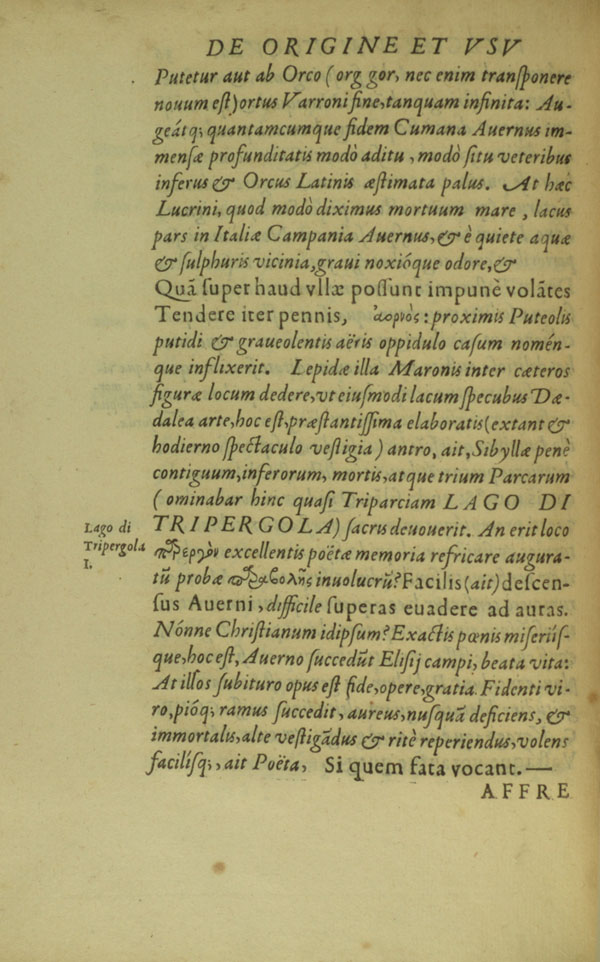 DE ORIGINE ET VSV
Putetur aut ab Orco (org gor, nec enim transponere
nouum est) ortus Varroni fine, tanquam infinita: Au-
geátq; quantamcumque fidem Cumana Auernus im-
mensæ profunditatis modò aditu, modò situ veteribus
inferus & Orcus Latinis æstimata palus. At hæc
Lucrini, quod modò diximus mortuum mare, lacus
pars in Italiæ Campania Auernus, & è quiete aquæ
& sulphuris vicinia, graui noxióque odore, &
Quā super haud vllæ possunt impunè volātes
Tendere iter pennis, ἄορνος: proximis Puteolis
putidi & graueolentis aëris oppidulo casum nomén-
que inflixerit. Lepidæ illa Maronis inter cæteros
figuræ locum dedere, vt eiusmodi lacum specubus Dæ-
dalea arte, hoc est, præstantissima elaboratis (extant &
hodierno spectaculo vestigia) antro, ait, Sibyllæ penè
contiguum, inferorum, mortis, atque trium Parcarum
(ominabar hinc quasi Triparciam LAGO DI
Lago di
Tripergola
I.
TRIPERGOLA) sacris deuouerit. An erit loco
excellentis poëtæ memoria refricare augura-
tū probæ inuolucrū? Facilis (ait) descen-
sus Auerni, difficile superas euadere ad auras.
Nónne Christianum idipsum? Exactis pœnis miseriís-
que, hoc est, Auerno succedūt Elisij campi, beata vita:
At illos subituro opus est fide, opere, gratia. Fidenti vi-
ro, pióq; ramus succedit, aureus, nusquā deficiens, &
immortalis, alte vestigādus & ritè reperiendus, volens
facilísq;, ait Poëta, Si quem fata vocant.—
AFFRE